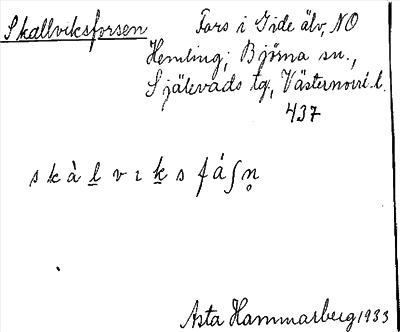 Skallviksforsen Fors i Gide älv, NO
Hemling; Björna sn.,
Själevads tg, Västernorrl. l.
437
s k à l̲ v ı k̲ s f á ʃ n̥
Asta Hammarberg 1933